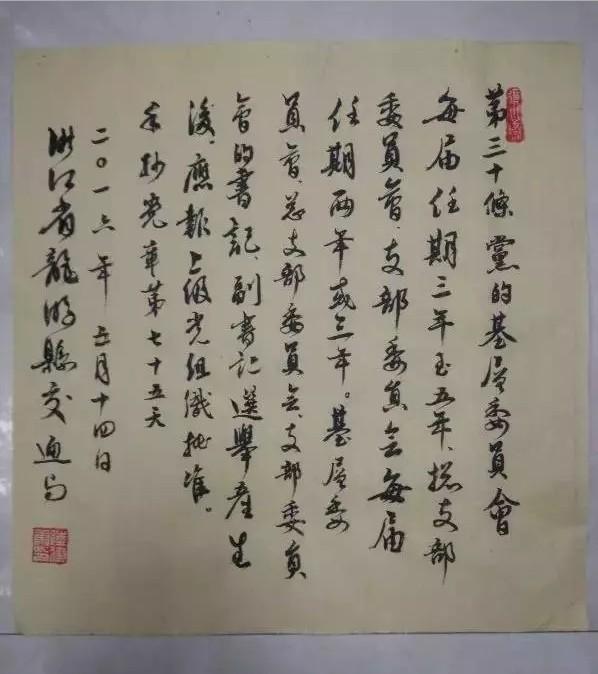 第三十條黨的基层委員會
每届任期三年至五年、总支部
委員會、支部委員会每届
任期两年或三年。基层委
員會、总支部委員会、支部委員
會的書記、副書记選舉產生
後，應報上级党组織批准。
手抄党章第七十五天
二〇一六年 五月十四日
浙江省龍游縣交通局